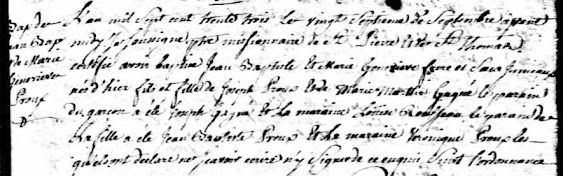 Bap de
Jean Bap
et de Marie
Genevieve
Proux
L'an mil Sept cent trente trois le vingt Septieme de Septembre avant
midy Je soussigné ptre missionnaire de St Pierre et de St Thomas
certifie avoir baptisé Jean Baptiste et Marie Genevieve frere et Sœur Jumeaux
nés d'hier fils et fille de Joseph Proux et de Marie Gagné le parain
du garcon a été Joseph Gagné et La maraine Louise Rousseau le parain de
La fille a été Jean Baptiste Proux et La maraine Veronique Proux les
quels ont declaré ne scavoir ecrire n'y Signer de ce enquis Suivt L'ordonnance